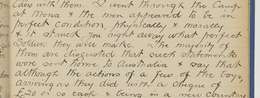 days with them. I went through the Camp
at Mena & the men appeared to be in
perfect condition, physically & morally
& it struck you right away what perfect
Soldiers they will make. The majority of
them are disgusted that such statements
were sent home to Australia & say that
although the actions of a few of the boys,
arriving as they did with a cheque of
£20 or so each & being in a new country